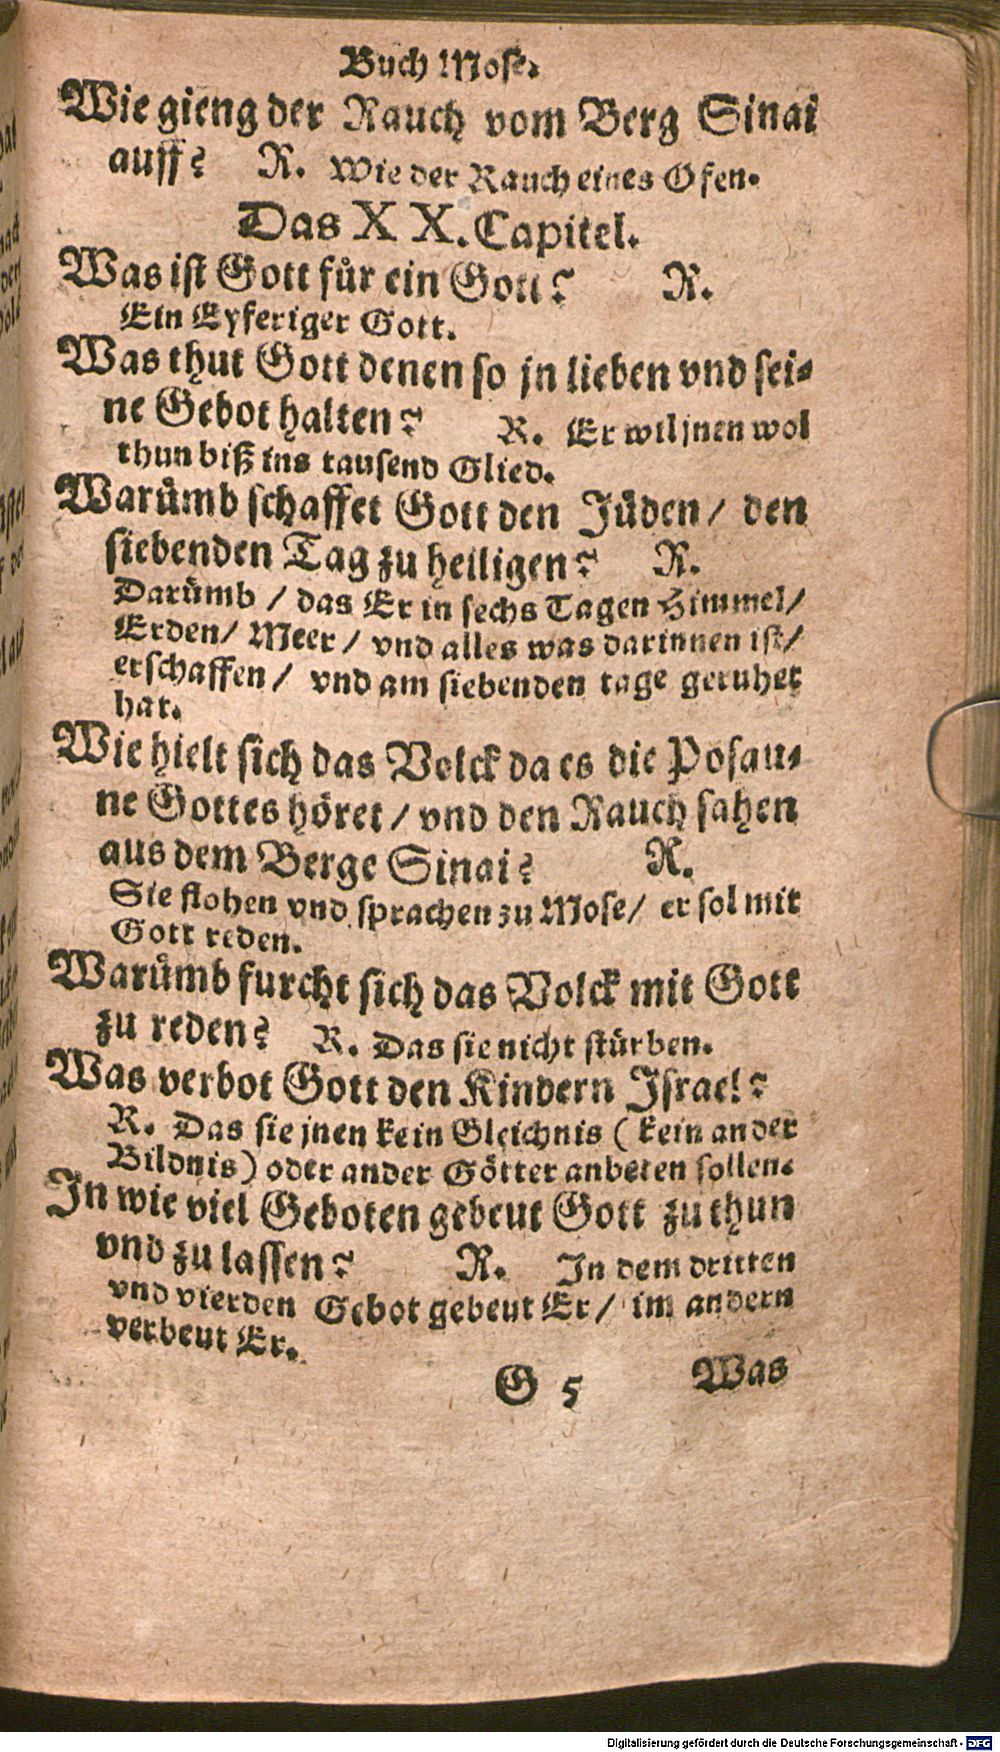 Buch Mose.
Wie gieng der Rauch vom Berg Sinai
auff? R. Wie der Rauch eines Ofen.
Das XX. Capitel.
Was ist Gott fuͤr ein Gott? R.
Ein Eyferiger Gott.
Was thut Gott denen so jn lieben vnd sei-
ne Gebot halten? R. Er wil jnen wol
thun biß ins tausend Glied.
Waruͤmb schaffet Gott den Juͤden / den
siebenden Tag zu heiligen? R.
Daruͤmb / das Er in sechs Tagen Himmel /
Erden / Meer / vnd alles was darinnen ist /
erschaffen / vnd am siebenden tage geruhet
hat.
Wie hielt sich das Volck da es die Posau-
ne Gottes hoͤret / vnd den Rauch sahen
aus dem Berge Sinai? R.
Sie flohen vnd sprachen zu Mose / er sol mit
Gott reden.
Waruͤmb furcht sich das Volck mit Gott
zu reden? R. Das sie nicht stuͤrben.
Was verbot Gott den Kindern Israel?
R. Das sie jnen kein Gleichnis (kein ander
Bildnis) oder ander Goͤtter anbeten sollen.
In wie viel Geboten gebeut Gott zu thun
vnd zu lassen? R. In dem dritten
vnd vierden Gebot gebeut Er / im andern
verbeut Er.
G 5 Was
Digitalisierung gefördert durch die Deutsche Forschungsgemeinschaft - DFG